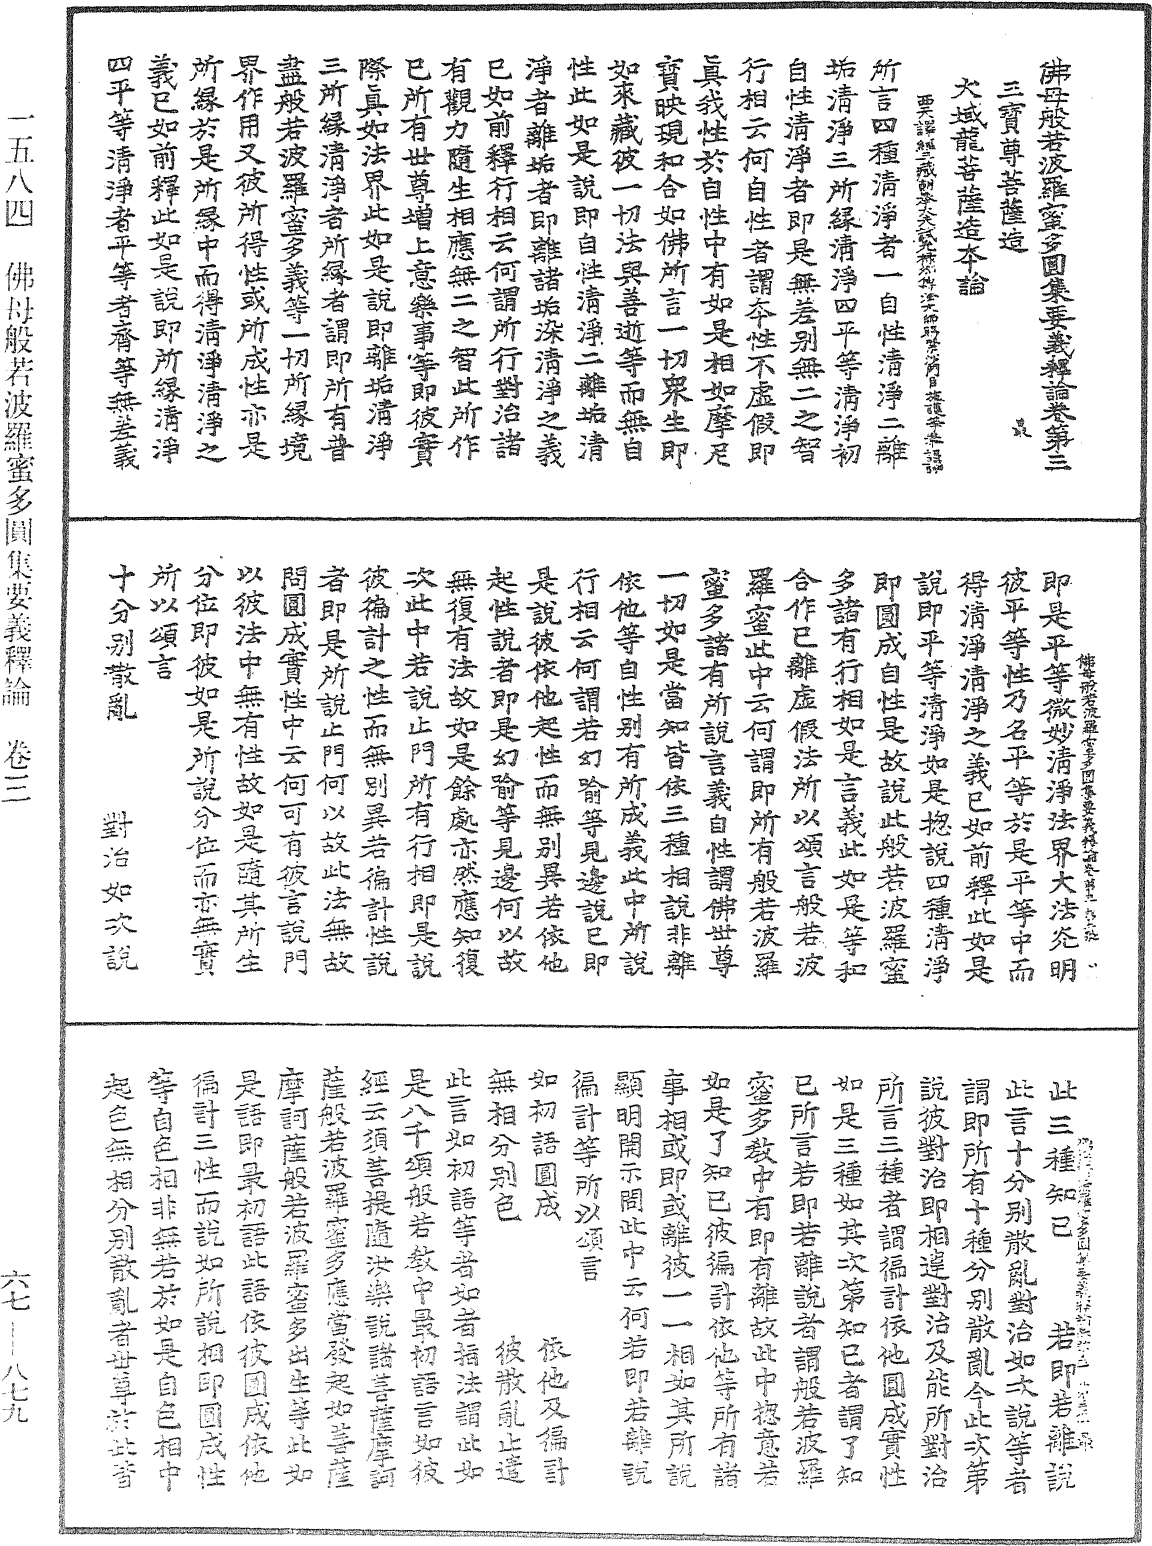 佛母般若波羅蜜多圓集要義釋論卷第三
最
三寶尊菩薩造
大域龍菩薩造本論
所言四種清淨者一自性清淨二離
垢清淨三所緣清淨四平等清淨初
自性清淨者即是無差別無二之智
行相云何自性者謂本性不虛假即
真我性於自性中有如是相如摩尼
寶映現和合如佛所言一切衆生即
如來藏彼一切法與善逝等而無自
性此如是說即自性清淨二離垢清
淨者離垢者即離諸垢染清淨之義
已如前釋行相云何謂所行對治諸
有觀力隨生相應無二之智此所作
已所有世尊增上意樂事等即彼實
際真如法界此如是說即離垢清淨
三所緣清淨者所緣者謂即所有普
盡般若波羅蜜多義等一切所緣境
界作用又彼所得性或所成性亦是
所緣於是所緣中而得清淨清淨之
義已如前釋此如是說即所緣清淨
四平等清淨者平等者齊等無差義
即是平等微妙清淨法界大法光明
彼平等性乃名平等於是平等中而
得清淨清淨之義已如前釋此如是
說即平等清淨如是揔說四種清淨
即圓成自性是故說此般若波羅蜜
多諸有行相如是言義此如是等和
合作已離虛假法所以頌言般若波
羅蜜此中云何謂即所有般若波羅
蜜多諸有所說言義自性謂佛世尊
一切如是當知皆依三種相說非離
依他等自性別有所成義此中所說
行相云何謂若幻喻等見邊說已即
是說彼依他起性而無別異若依他
起性說者即是幻喻等見邊何以故
無復有法故如是餘處亦然應知復
次此中若說止門所有行相即是說
彼徧計之性而無別異若徧計性說
者即是所說止門何以故此法無故
問圓成實性中云何可有彼言說門
以彼法中無有性故如是隨其所生
分位即彼如是所說分位而亦無實
所以頌言
十分別散亂　對治如次說
此三種知已　若即若離說
此言十分別散亂對治如次說等者
謂即所有十種分別散亂今此次第
說彼對治即相違對治及能所對治
所言三種者謂徧計依他圓成實性
如是三種如其次第知已者謂了知
已所言若即若離說者謂般若波羅
蜜多教中有即有離故此中揔意若
如是了知已彼徧計依他等所有諸
事相或即或離彼一一相如其所說
顯明開示問此中云何若即若離說
徧計等所以頌言
如初語圓成　依他及徧計
無相分別色　彼散亂止遣
此言如初語等者如者指法謂此如
是八千頌般若教中最初語言如彼
經云須菩提隨汝樂說諸菩薩摩訶
薩般若波羅蜜多應當發起如菩薩
摩訶薩般若波羅蜜多出生等此如
是語即最初語此語依彼圓成依他
徧計三性而說如所說相即圓成性
等自色相非無若於如是自色相中
起色無相分別散亂者世尊於此皆
一五八四　佛母般若波羅蜜多圓集要義釋論　卷三
六七—八七九